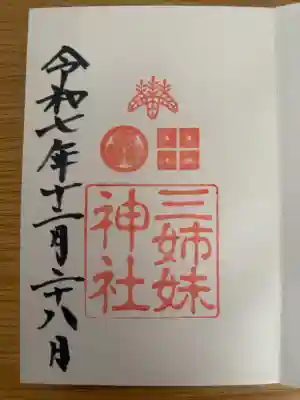 三姉妹
神社
令和七年十二月二十八日